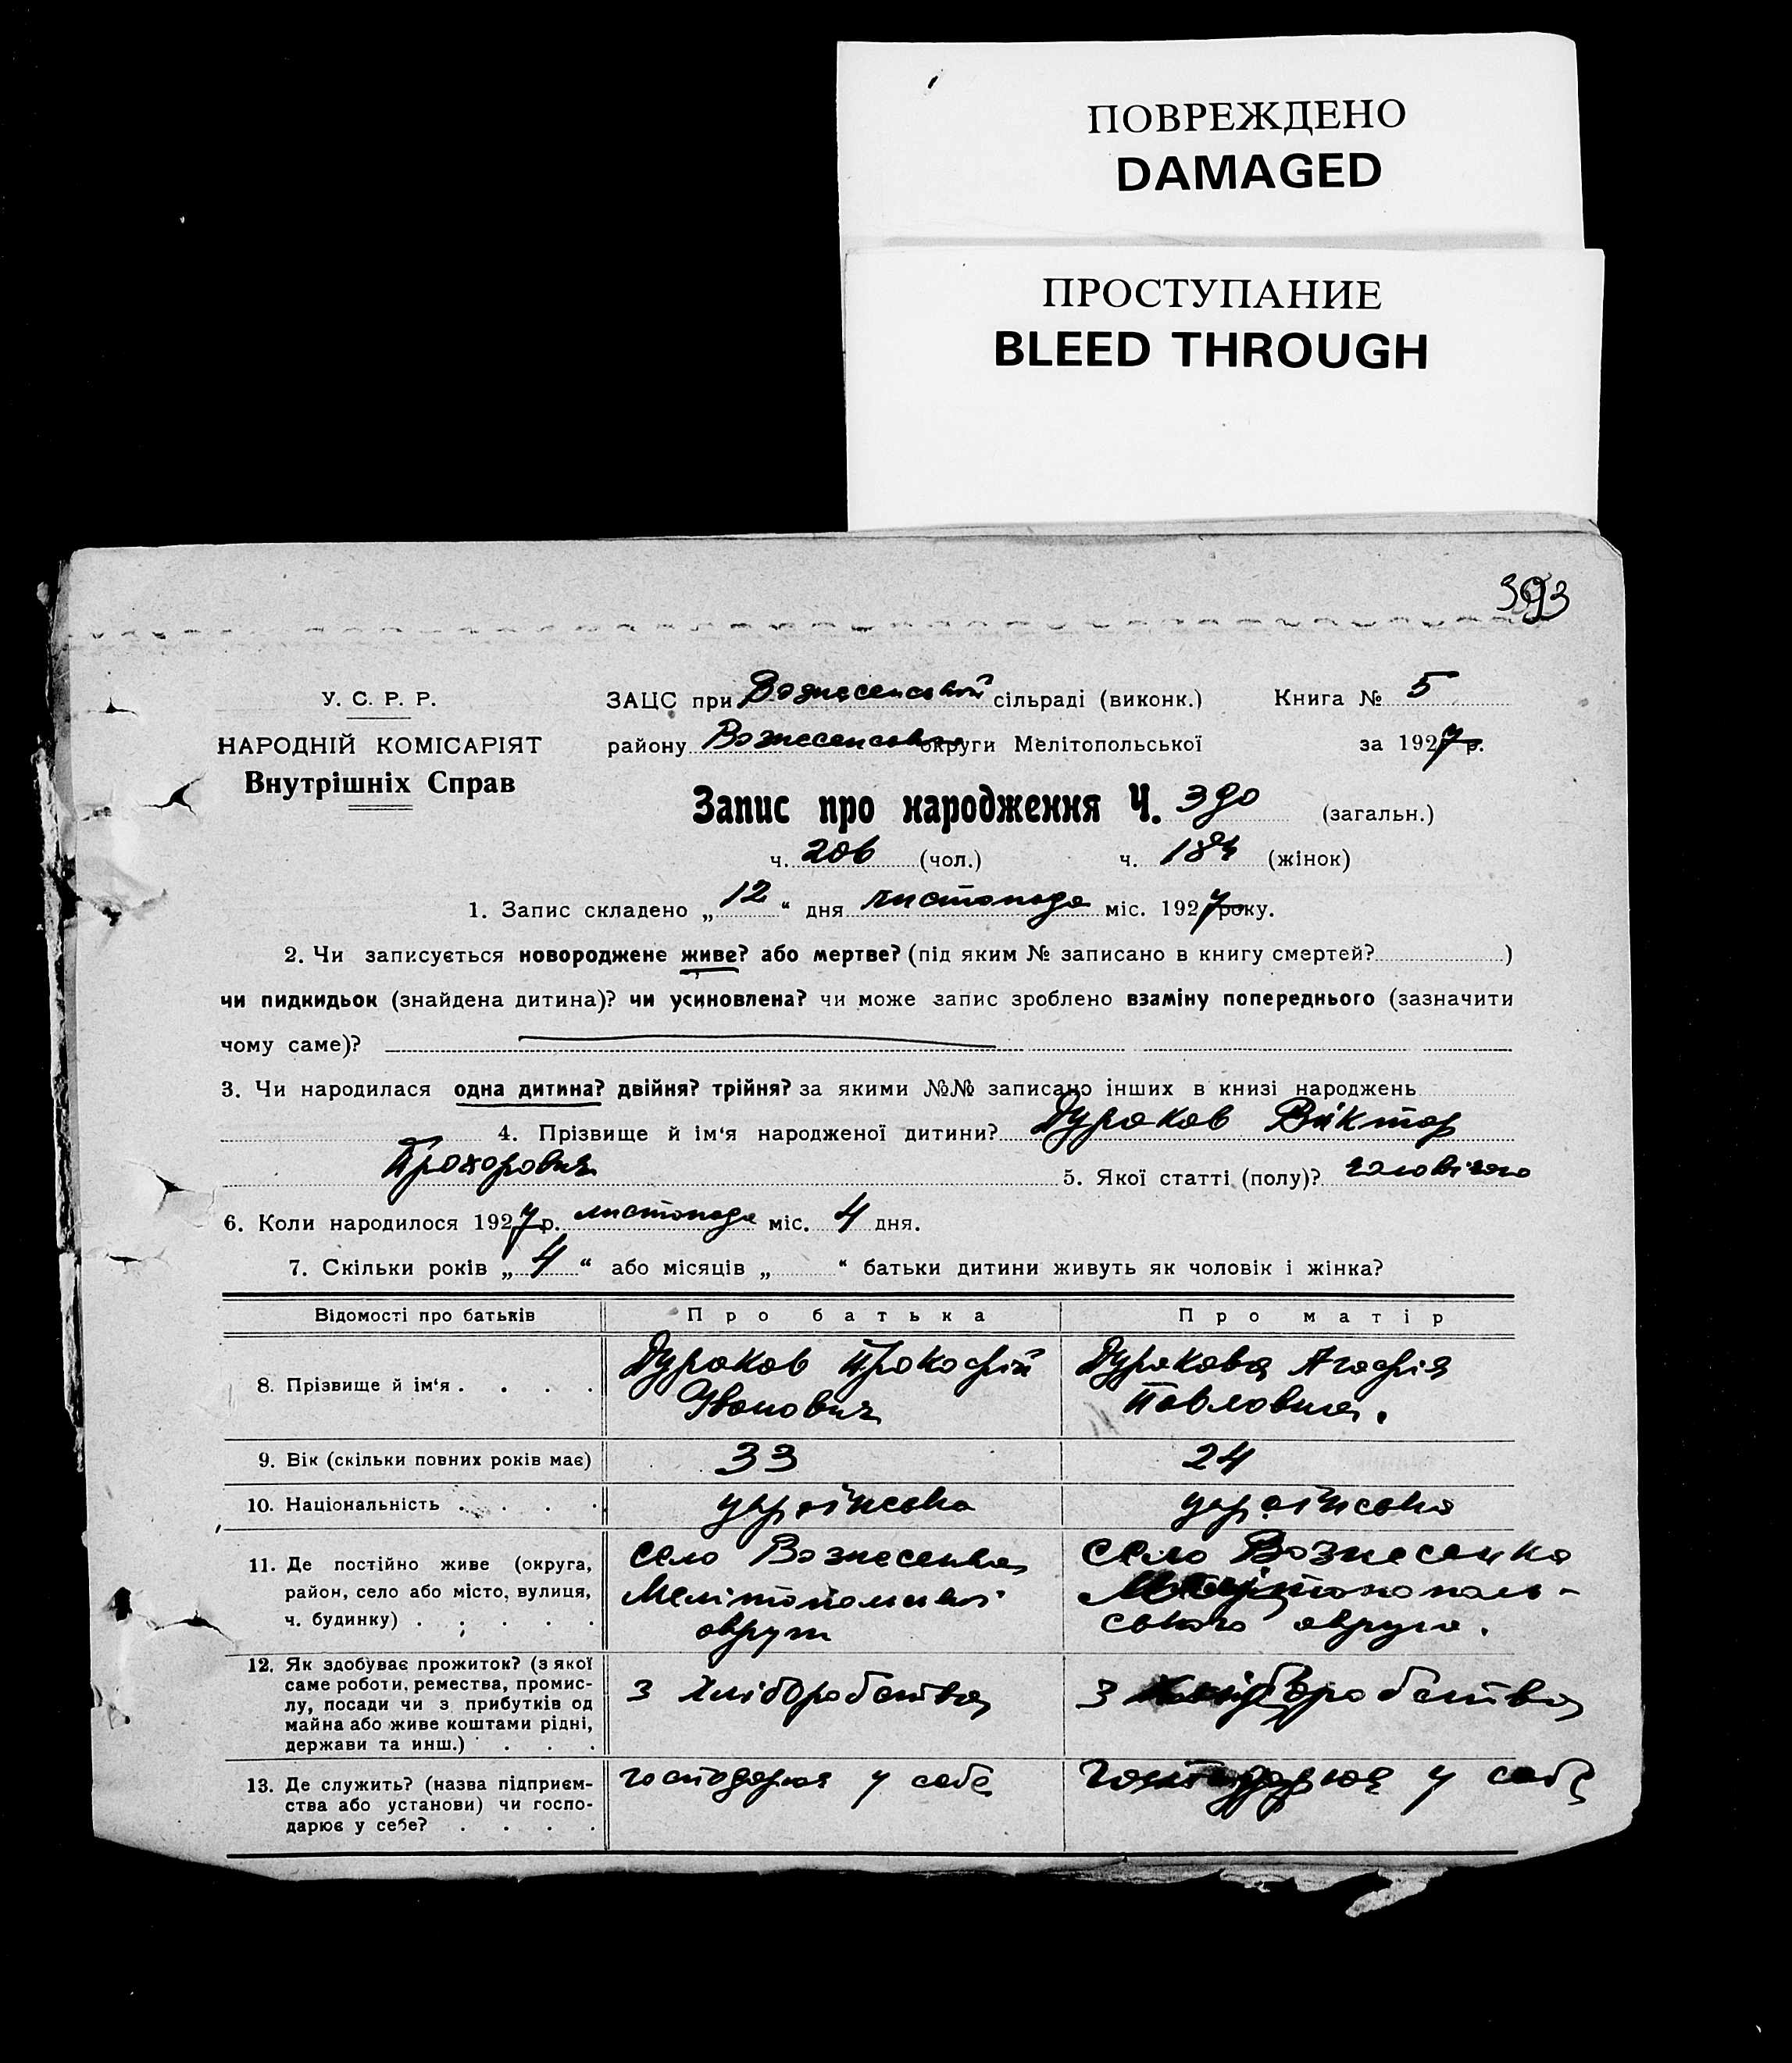 ПОВРЕЖДЕНО
DAMAGED
ПРОСТУПАНИЕ
BLEED THROUGH
393
У. С. Р. Р.
НАРОДНІЙ КОМІСАРІЯТ
Внутрішніх Справ
ЗАЦС при Вознесенській сільраді (виконк.) Книга № 5
району Вознесенського округи Мелітопольської за 1927 р.
Запис про народження Ч. 390 (загальн.)
ч. 206 (чол.) ч. 184 (жінок)
1. Запис складено „12“ дня листопада міс. 1927 року.
2. Чи записується новороджене живе? або мертве? (під яким № записано в книгу смертей? )
чи пидкидьок (знайдена дитина)? чи усиновлена? чи може запис зроблено взаміну попереднього (зазначити
чому саме)?
3. Чи народилася одна дитина? двійня? трійня? за якими №№ записано інших в книзі народжень
4. Прізвище й ім‘я народженої дитини? Дураков Віктор
Прохорович 5. Якої статті (полу)? чоловічого
6. Коли народилося 1927 р. листопада міс. 4 дня.
7. Скільки років „4“ або місяців „ “ батьки дитини живуть як чоловік і жінка?
Відомості про батьків Про батька Про матір
8. Прізвище й ім‘я . . . . Дураков Прокофій Іванович Дуракова Агафія Павловна.
9. Вік (скільки повних років має) 33 24
10. Національність . . . . українська українська
11. Де постійно живе (округа,
район, село або місто, вулиця,
ч. будинку) . . . . .
село Вознесенка
Мелітопольської
округи
село Вознесенка
поль-
ського округа.
12. Як здобуває прожиток? (з якої
саме роботи, ремества, промис-
лу, посади чи з прибутків од
майна або живе коштами рідні,
держави та инш.) . . . .
з хліборобства з хліборобства
13. Де служить? (назва підприєм-
ства або установи) чи госпо-
дарює у себе? . . . .
господарює у себе господарює у себе